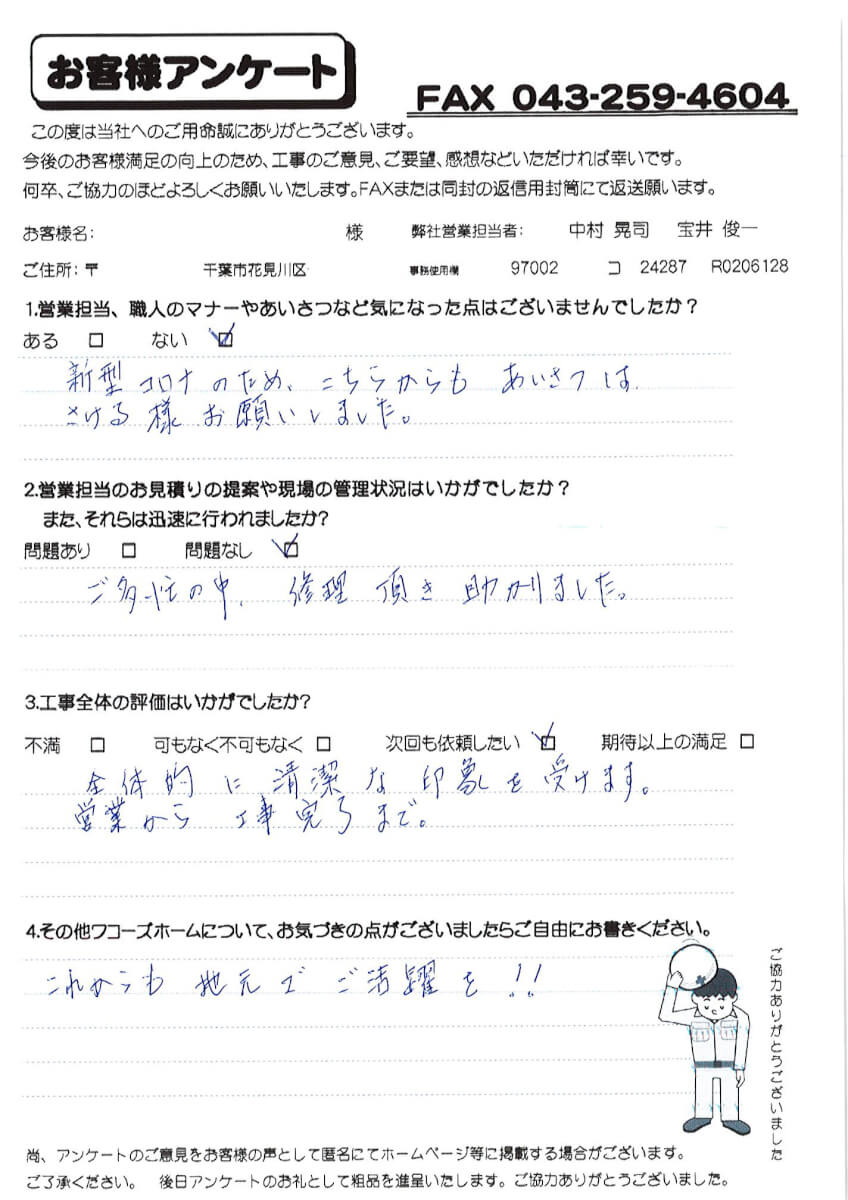 お客様アンケート
FAX 043-259-4604
この度は当社へのご用命誠にありがとうございます。
今後のお客様満足の向上のため、工事のご意見、ご要望、感想などいただければ幸いです。
何卒、ご協力のほどよろしくお願いいたします。FAXまたは同封の返信用封筒にて返送願います。
お客様名： 様 弊社営業担当者： 中村 晃司 宝井 俊一
ご住所：〒 千葉市花見川区 事務使用欄 97002 コ 24287 R0206128
1.営業担当、職人のマナーやあいさつなど気になった点はございませんでしたか？
ある □ ない ☑
新型コロナのため、こちらからも あいさつは
さける様お願いしました。
2.営業担当のお見積りの提案や現場の管理状況はいかがでしたか？
また、それらは迅速に行われましたか？
問題あり □ 問題なし ☑
ご多忙の中、修理頂き助かりました。
3.工事全体の評価はいかがでしたか？
不満 □ 可もなく不可もなく □ 次回も依頼したい ☑ 期待以上の満足 □
全体的に清潔な印象を受けます。
営業から工事完了まで。
4.その他ワコーズホームについて、お気づきの点がございましたらご自由にお書きください。
これからも地元でご活躍を!!
ご協力ありがとうございました
尚、アンケートのご意見をお客様の声として匿名にてホームページ等に掲載する場合がございます。
ご了承ください。 後日アンケートのお礼として粗品を進呈いたします。ご協力ありがとうございました。